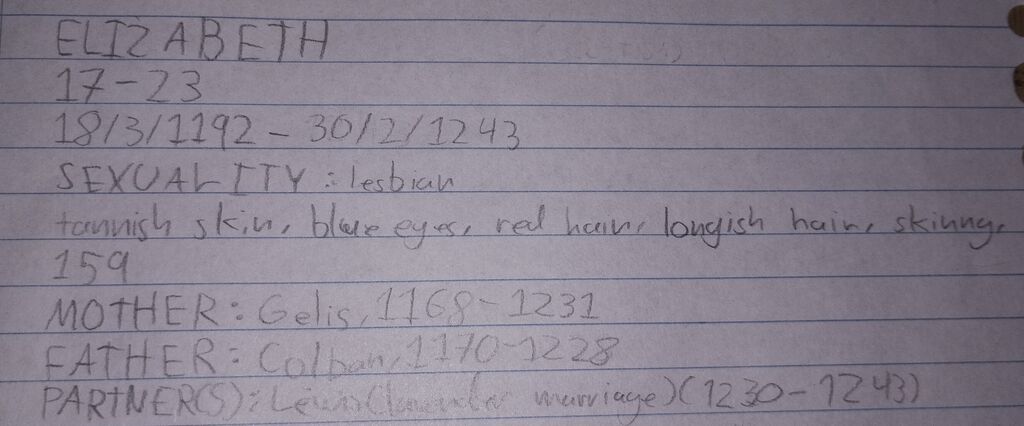 ELIZABETH
17-23
18/3/1192 - 30/2/1243
SEXUALITY: lesbian
tannish skin, blue eyes, red hair, longish hair, skinny,
159
MOTHER: Gelis, 1168-1231
FATHER: Colban, 1170-1228
PARTNER(S): (lavender marriage) (1230-1243)